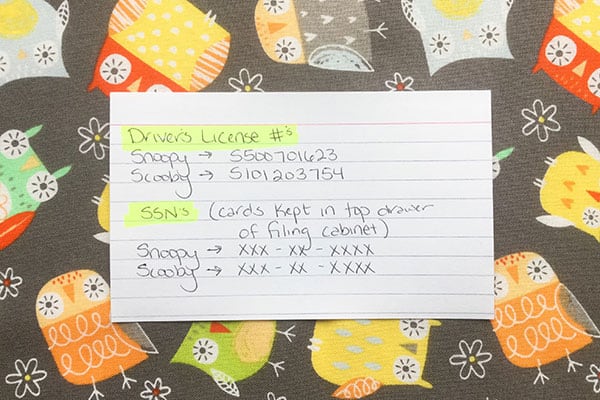 Driver's License #'s
Snoopy → S500701623
Scooby → S101203754
SSN's (cards kept in top drawer
of filing cabinet)
Snoopy → XXX-XX-XXXX
Scooby → XXX-XX-XXXX